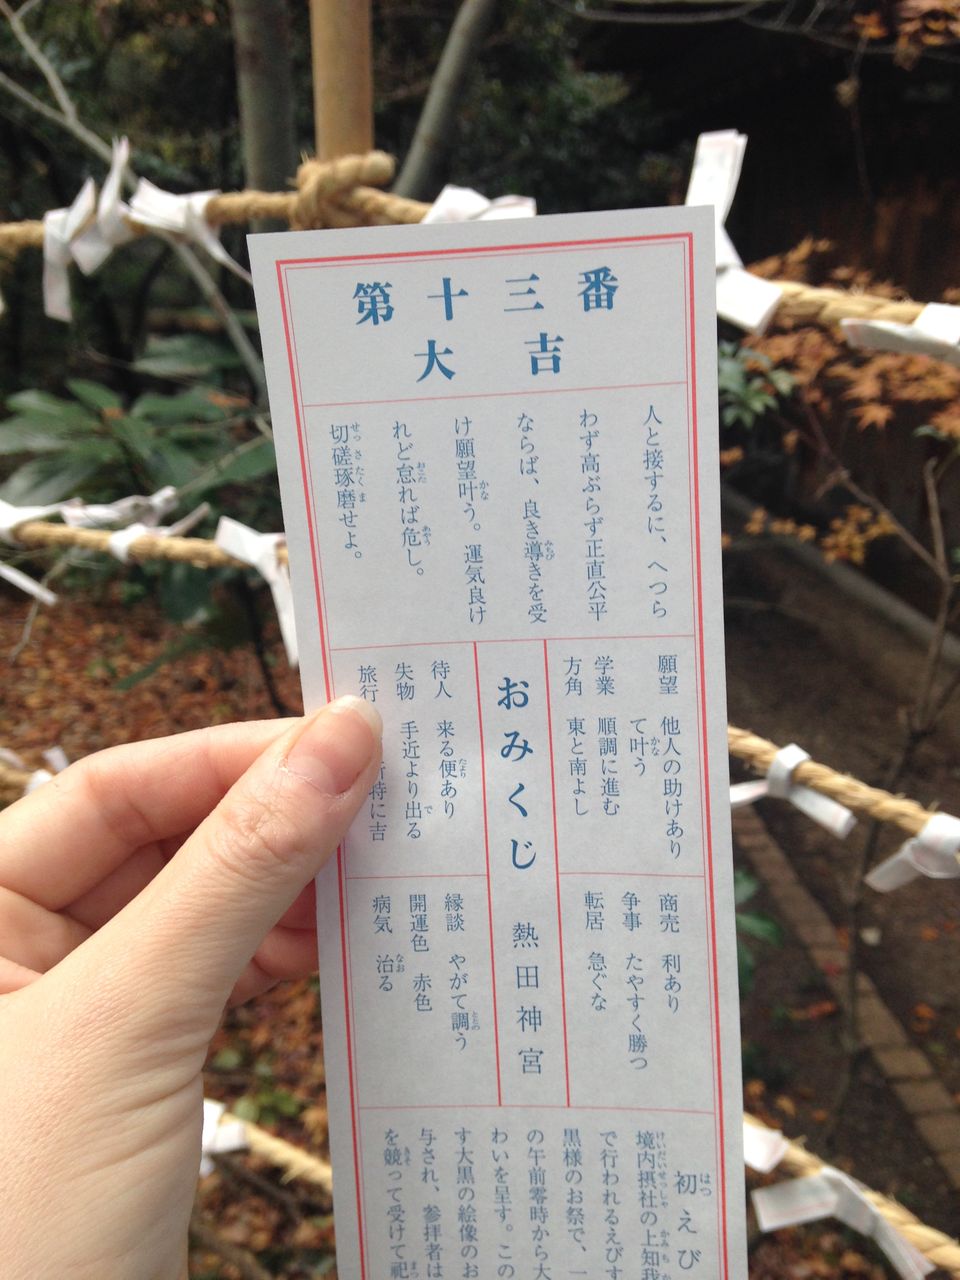 第十三番
大吉
人と接するに、へつら
わず高ぶらず正直公平
ならば、良き導きを受
け願望叶う。運気良け
れど怠れば危し。
切磋琢磨せよ。
願望 他人の助けあり
て叶う
学業 順調に進む
方角 東と南よし
商売 利あり
争事 たやすく勝つ
転居 急ぐな
おみくじ 熱田神宮
待人 来る便あり
失物 手近より出る
旅行 特に吉
縁談 やがて調う
開運色 赤色
病気 治る
初えび
境内摂社の上知我
で行われるえびす
黒様のお祭で、一
の午前零時から大
わいを呈す。この
す大黒の絵像のお
与され、参拝者は
を競って受けて祀